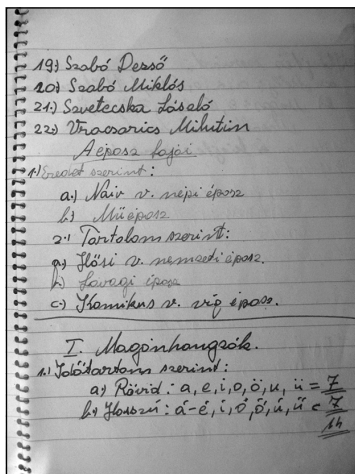 19.) Szabó Dezső
20.) Szabó Miklós
21.) Szvetecska László
22.) Vracsarics Milutin
A eposz fajai
1.) Eredet szerint:
a.) Naiv v. népi éposz
b.) Műéposz
2.) Tartalom szerint:
a.) Hősi v. nemzeti éposz.
b.) Lovagi éposz
c.) Komikus v. víg éposz.
I. Magánhangzók.
1.) Időtartam szerint:
a.) Rövid: a, e, i, o, ö, u, ü = 7
b.) Hosszú: á-é, í, ó, ő, ú, ű = 7
14